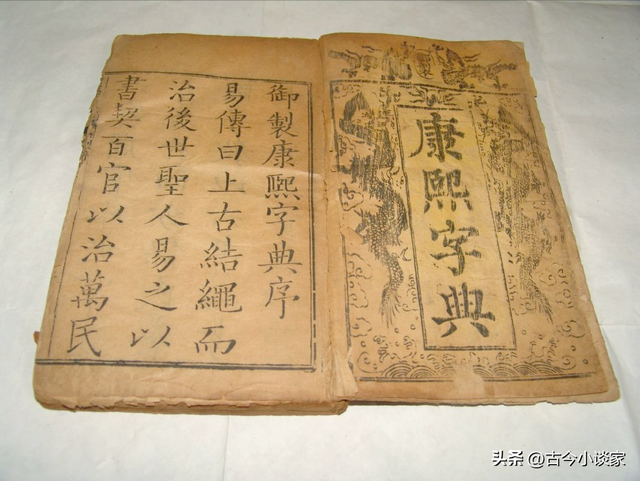 康熙字典
御製康熙字典序
易傳曰上古結繩而
治後世聖人易之以
書契百官以治萬民
头条 @古今小谈家